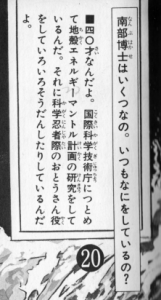 南部博士はいくつなの。いつもなにをしているの？
■四〇才なんだよ。国際科学技術庁につとめ
て地殻エネルギーマントル計画の研究をして
いるんだ。それに科学忍者際のおとうさん役
をしていろいろそうだんしたりしているんだ
よ。
20